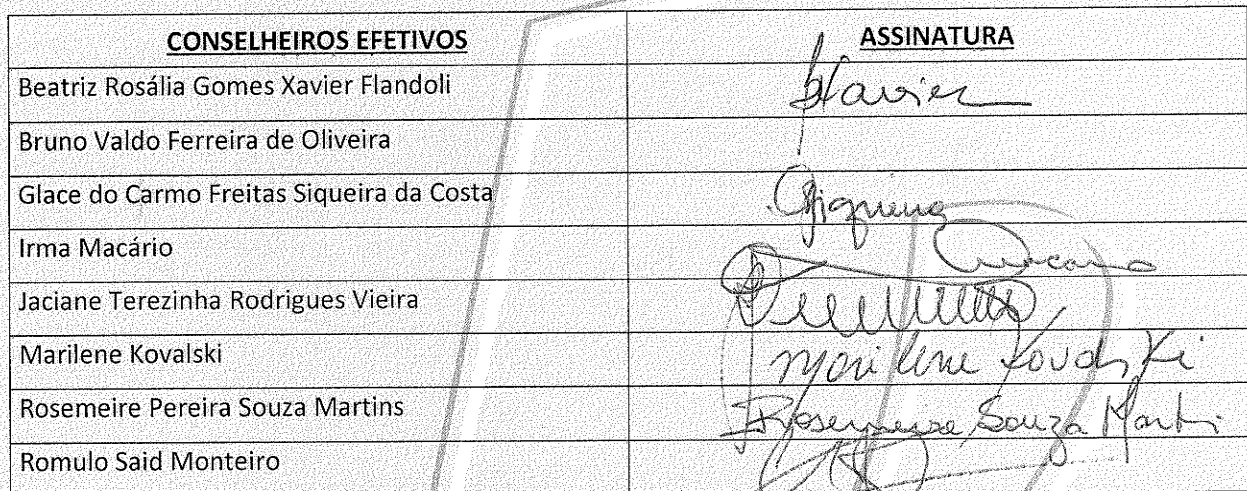 CONSELHEIROS EFETIVOS ASSINATURA
Beatriz Rosália Gomes Xavier Flandoli BXavier
Bruno Valdo Ferreira de Oliveira
Glace do Carmo Freitas Siqueira da Costa GSiqueira
Irma Macário
Jaciane Terezinha Rodrigues Vieira
Marilene Kovalski Marilene Kovalski
Rosemeire Pereira Souza Martins Rosemeire Souza Martins
Romulo Said Monteiro